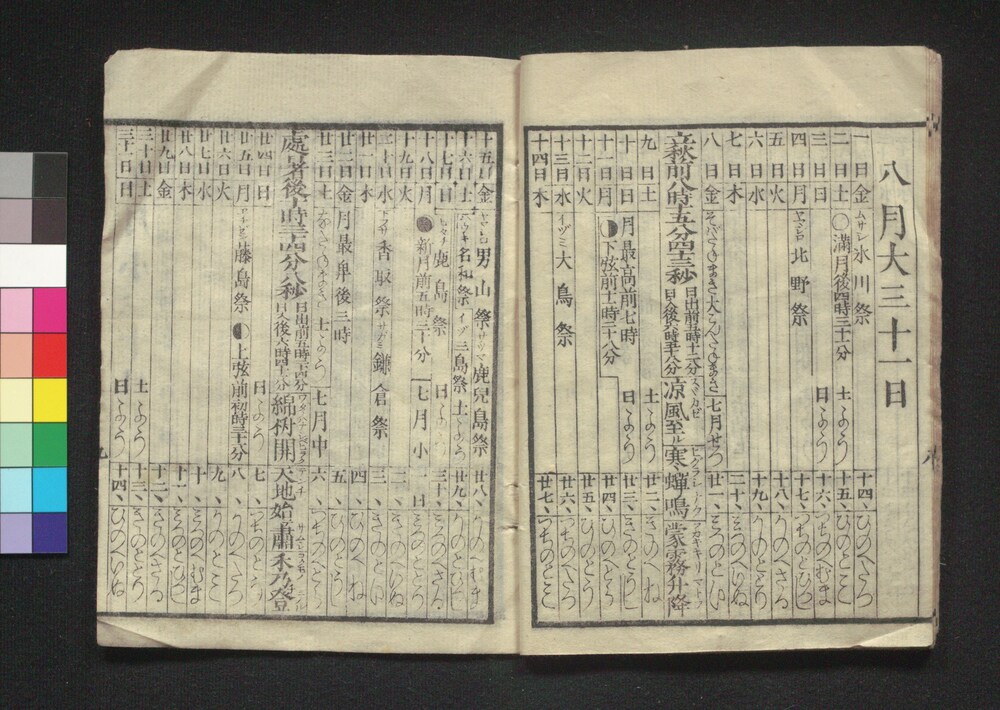 八月大三十一日
一日金 ムサシ 氷川祭 十四、ひのへたつ
二日土 ○満月後四時三十二分 土ようり 十五、ひのとのみ
三日日 日ようり 十六、つちのへむま
四日月 ヤマシロ 北野祭 十七、つちのとひつし
五日火 十八、かのへさる
六日水 十九、かのとのとり
七日木 二十、みつのへいぬ
八日金 七月せつ 廿一、みつのとのい
立秋前八時五分四十三秒 日出前五時十二分 日入後六時四十八分 涼風至ル 寒蟬鳴ク 蒙霧升降
九日土 土ようり 廿二、きのへね
十日日 月最高前七時 日ようり 廿三、きのとのうし
十一日月 下弦前十一時二十八分 廿四、ひのへとら
十二日火 廿五、ひのとのう
十三日水 イヅミ 大鳥祭 廿六、つちのへたつ
十四日木 廿七、つちのとのみ
十五日金 ヤマシロ 男山祭 サツマ 鹿兒島祭 廿八、かのへむま
十六日土 名和祭 イヅ 三島祭 土ようり 廿九、かのとのひつし
十七日日 ヒタチ 鹿島祭 日ようり 三十、みつのへさる
十八日月 ●新月前五時三十分 七月小 一日 みつのとのとり
十九日火 二、きのへいぬ
二十日水 香取祭 サガミ 鎌倉祭 三、きのとのい
廿一日木 四、ひのへね
廿二日金 月最卑後三時 五、ひのとのうし
廿三日土 土ようり 七月中 六、つちのへとら
處暑後十時三十四分八秒 日出前五時二十四分 日入後六時四十六分 綿柎開 天地始肅 禾乃登
廿四日日 日ようり 七、つちのとのう
廿五日月 藤島祭 上弦前初時三十分 八、かのへたつ
廿六日火 九、かのとのみ
廿七日水 十、みつのへむま
廿八日木 十一、みつのとのひつし
廿九日金 十二、きのへさる
三十日土 土ようり 十三、きのとのとり
三十一日日 日ようり 十四、ひのへいぬ